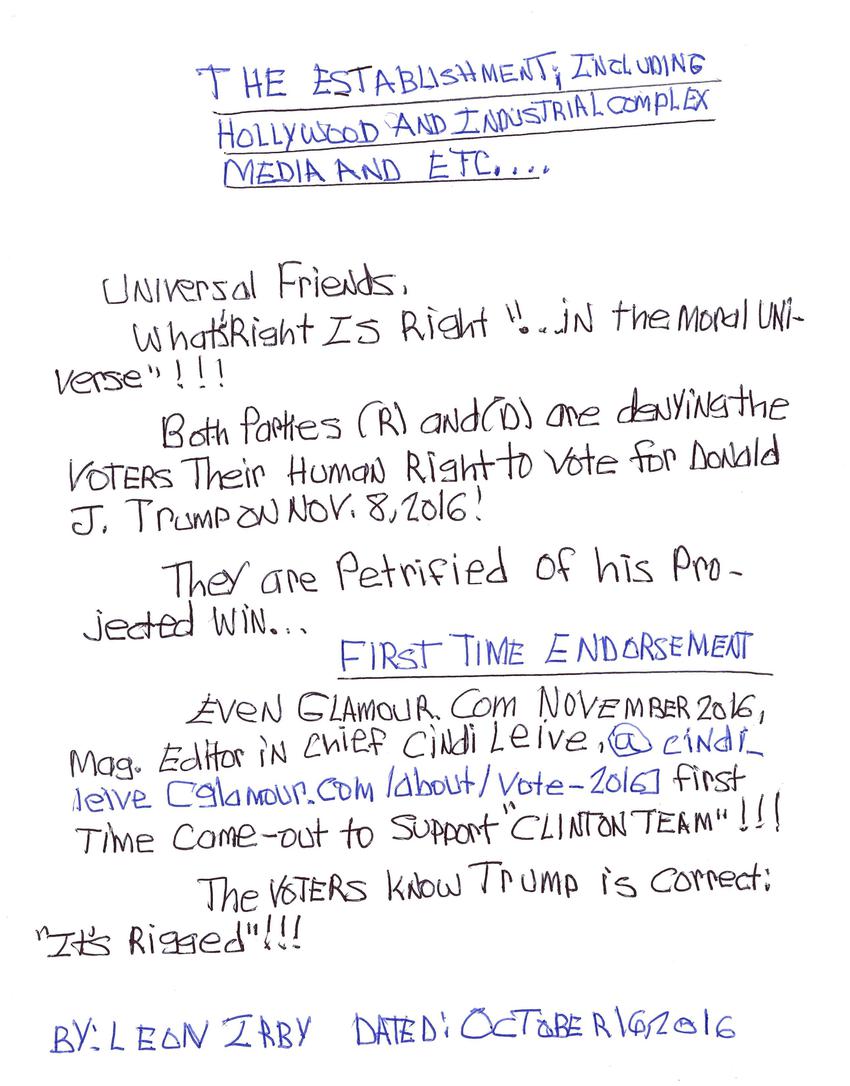 THE ESTABLISHMENT; INCLUDING
HOLLYWOOD AND INDUSTRIAL COMPLEX
MEDIA AND ETC....
Universal Friends,
What'sRight Is Right "...in the Moral Uni-
verse"!!!
Both Parties (R) and(D) are denying the
VOTERS Their Human Right to Vote for Donald
J. Trump on Nov. 8, 2016!
They are Petrified of his Pro-
jected Win...
FIRST TIME ENDORSEMENT
Even GLAMOUR.Com NOVEMBER 2016,
Mag. Editor in Chief Cindi Leive, @cindi_
leive [glamour.com/about/vote-2016] first
Time Come-out to Support "CLINTON TEAM"!!!
The VOTERS know Trump is correct:
"It's Rigged"!!!
BY: LEON IRBY DATED: OCTOBER 16, 2016